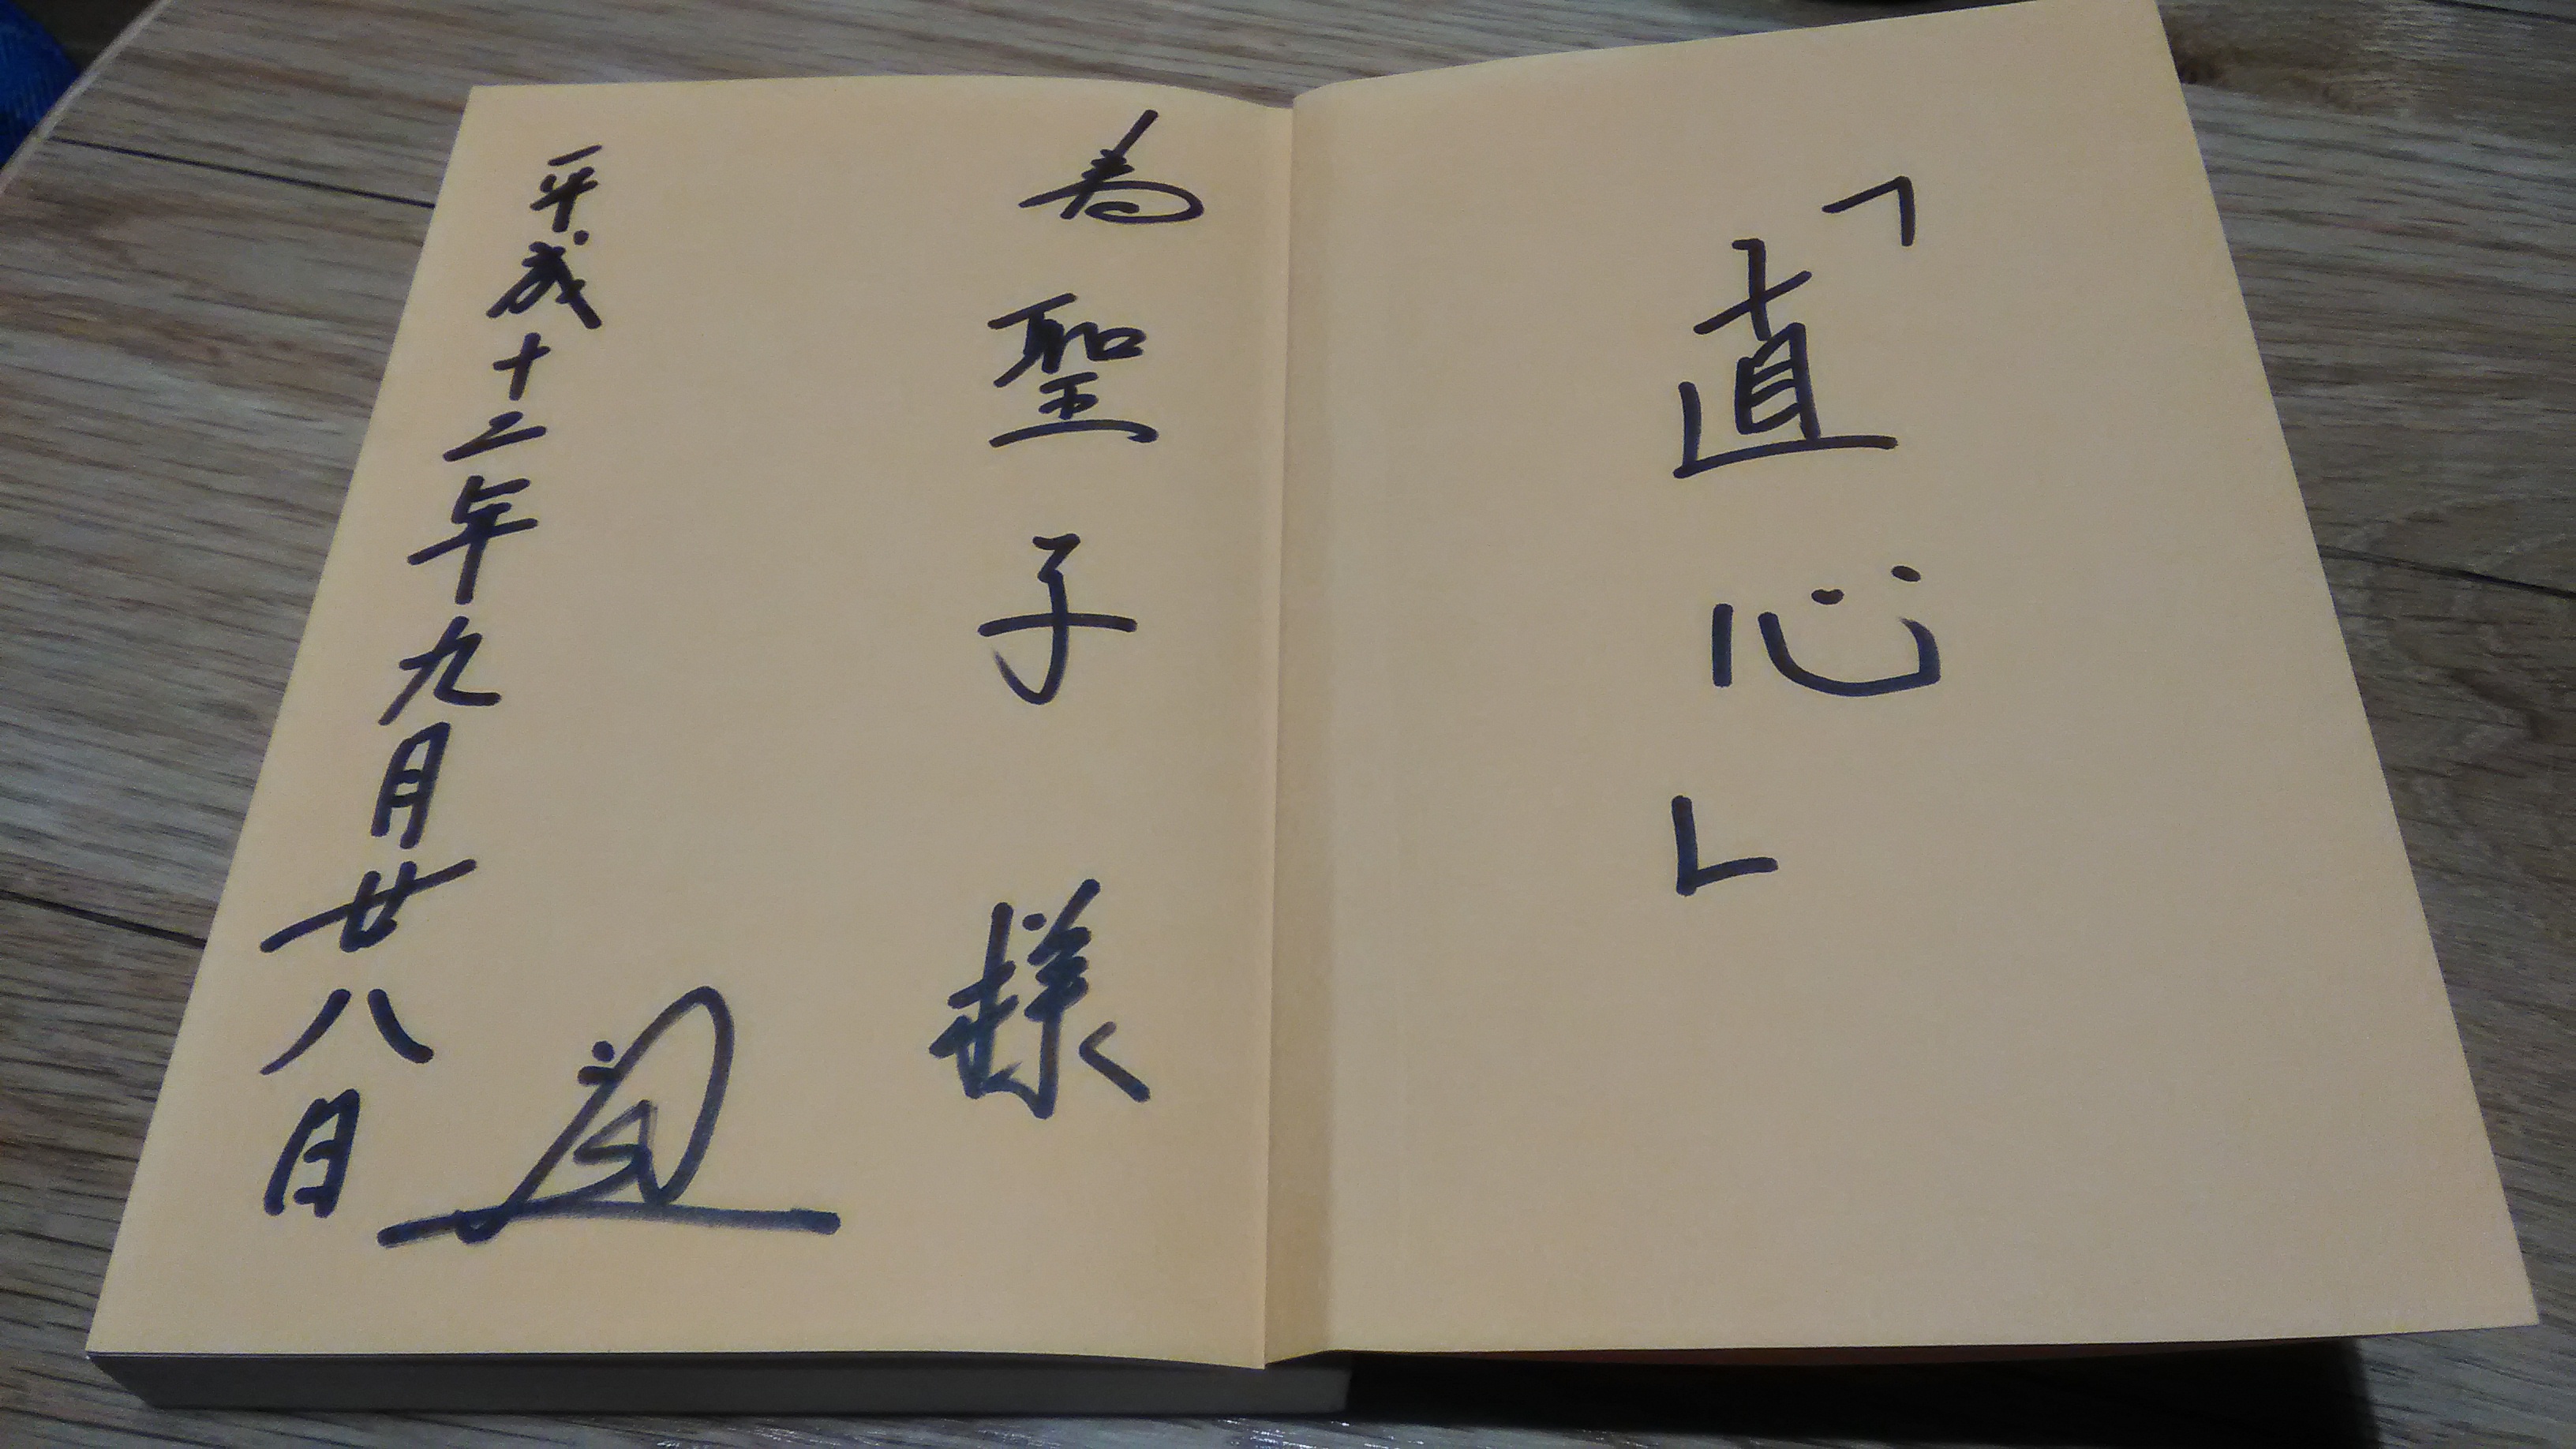 「直心」
為聖子様
平成十二年九月廿八日